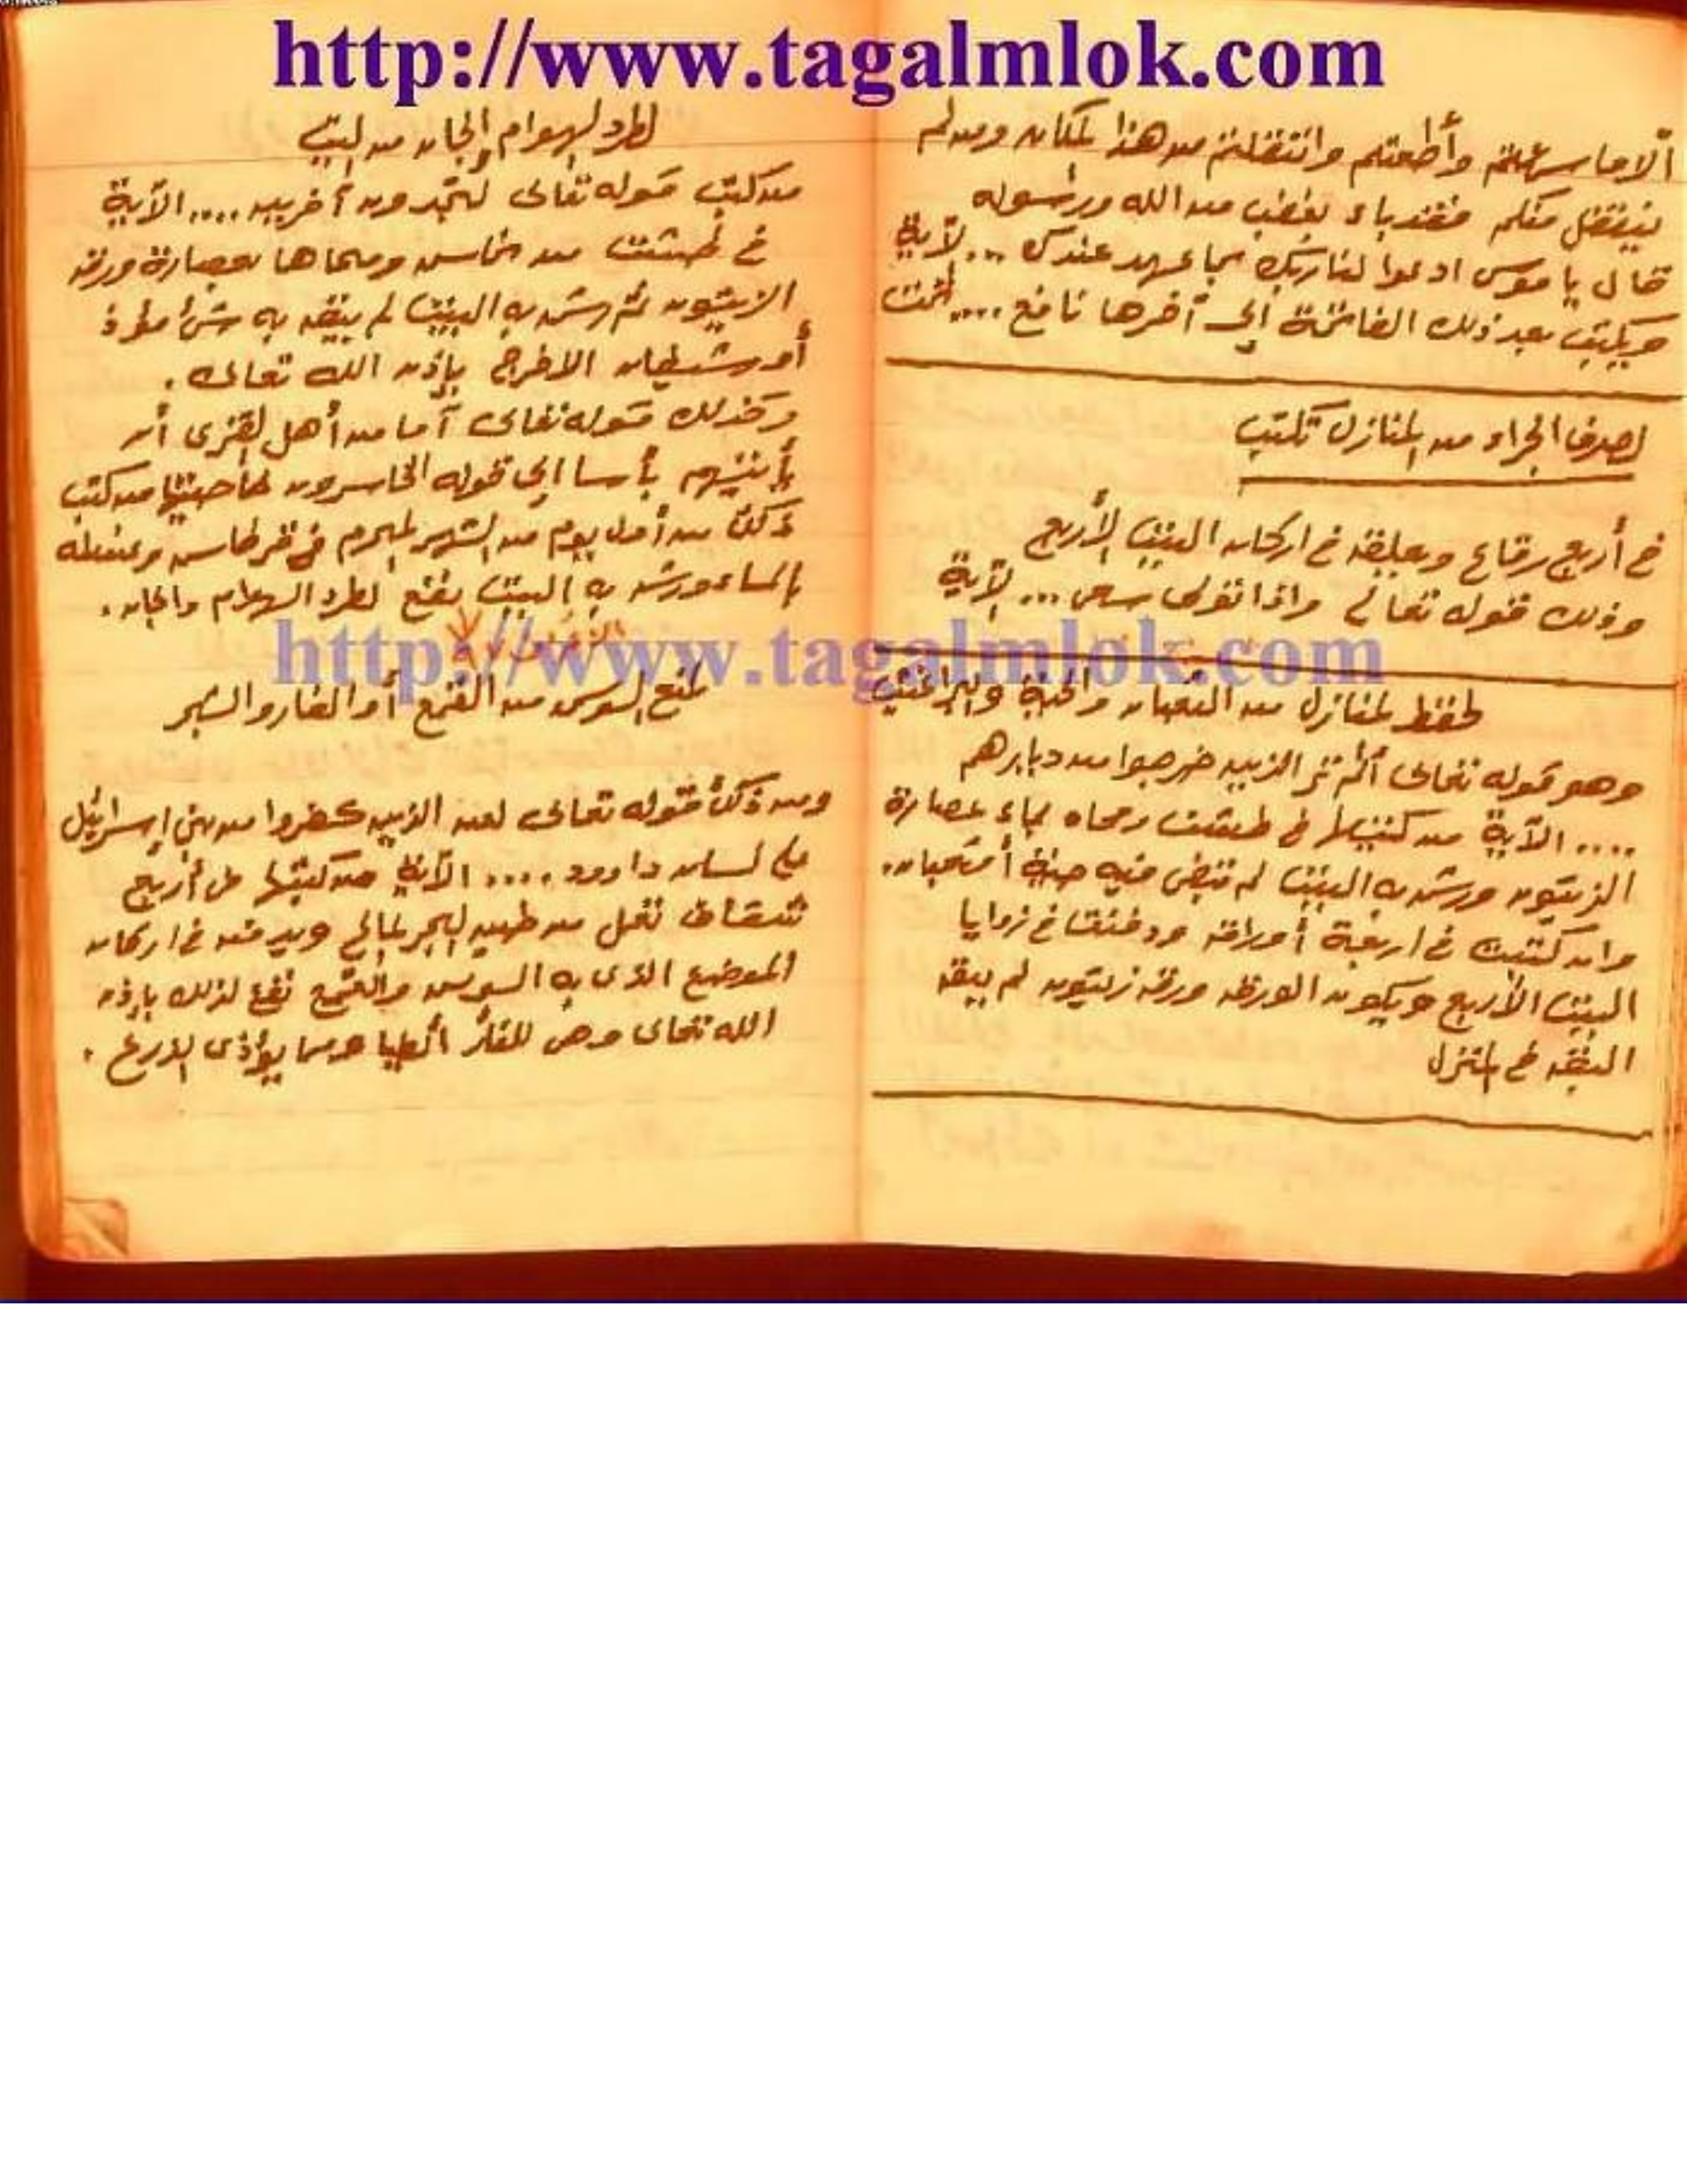 http://www.tagalmlok.com
ألا ما سمعتم وأطعتم وانتقلتم من هذا المكان ومن لم
ينتقل منكم فقد باء بغضب من الله ورسوله
قال يا موسى ادعوا لنا ربك بما عهد عندك ... الآية
ويكتب بعد ذلك الفاتحة إلى آخرها نافع .... تمت
لصرف الجراد من المنازل تكتب
في أربع رقاع ويعلقه في اركان البيت الأربع
وذلك قوله تعالى واذا تولى سعى ... الآية
لحفظ المنازل من الثعبان والحية والبراغيث
وهو قوله تعالى ألم تر الذين خرجوا من ديارهم
.... الآية من كتبها في طشت ومحاه بماء عصارة
الزيتون ورش به البيت لم تبقى فيه حية أو ثعبان.
وان كتبت في اربعة أوراق ودفنت في زوايا
البيت الأربع ويكون الورق ورق زيتون لم يبق
البق في المنزل
لطرد الهوام والجان من البيت
من كتب قوله تعالى ستجدون آخرين .... الآية
في طشت من نحاس ومحاها بعصارة ورق
الزيتون ثم رش به البيت لم يبق به شئ مؤذ
أو شيطان الا خرج بإذن الله تعالى .
وكذلك قوله تعالى أفأمن أهل القرى أن
يأتيهم بأسنا إلى قوله الخاسرون خاصيتها من كتب
ذلك من أول يوم من الشهر المحرم في قرطاس وغسله
بالماء ورش به البيت ينفع لطرد الهوام والجان .
http://www.tagalmlok.com
لمنع السوس من القمح أو الفار والشجر
ومن ذلك قوله تعالى لعن الذين كفروا من بني إسرائيل
على لسان داوود .... الآية من كتبها على أربع
شقاف تعمل من طين البحر المالح ويدفنه في اركان
الموضع الذى به السوس والقمح نفع لذلك بإذن
الله تعالى وهى للفأر أيضا ومما يؤذى الزرع .